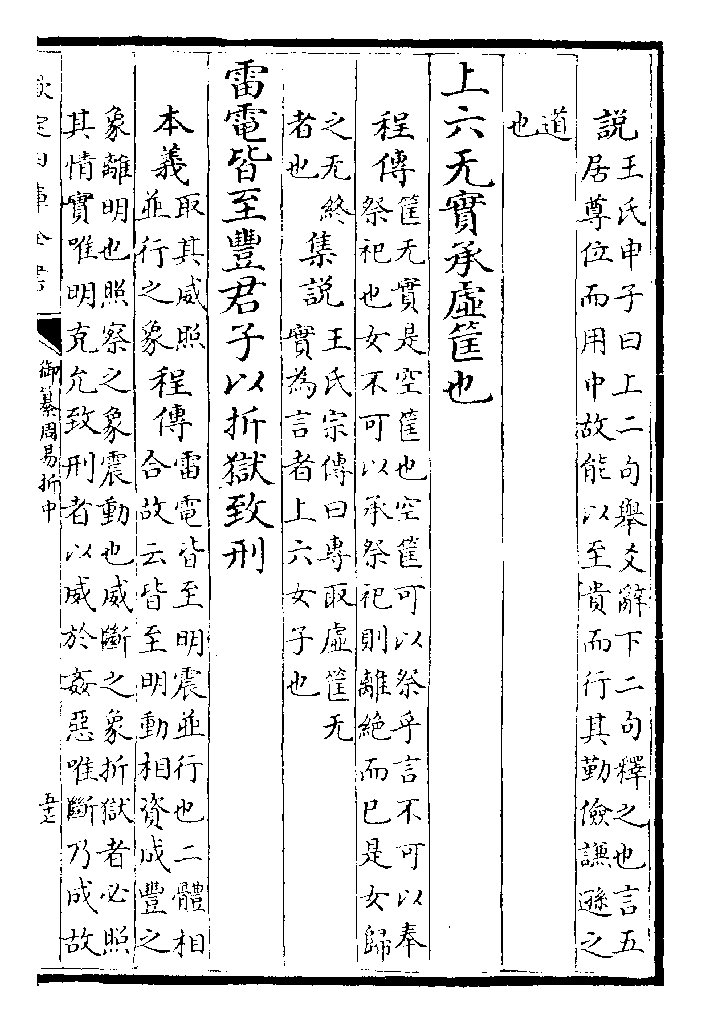 說王氏申子曰上二句舉爻辭下二句釋之也言五
居尊位而用中故能以至貴而行其勤儉謙遜之
道
也
上六无實承虛筐也
程傳筐无實是空筐也空筐可以祭乎言不可以奉
祭祀也女不可以承祭祀則離絶而已是女歸
之无終
者也
集說王氏宗傳曰專取虛筐无
實為言者上六女子也
雷電皆至豐君子以折獄致刑
本義取其威照
並行之象
程傳雷電皆至明震並行也二體相
合故云皆至明動相資成豐之
象離明也照察之象震動也威斷之象折獄者必照
其情實唯明克允致刑者以威於姦惡唯斷乃成故
欽定四庫全書
御纂周易折中